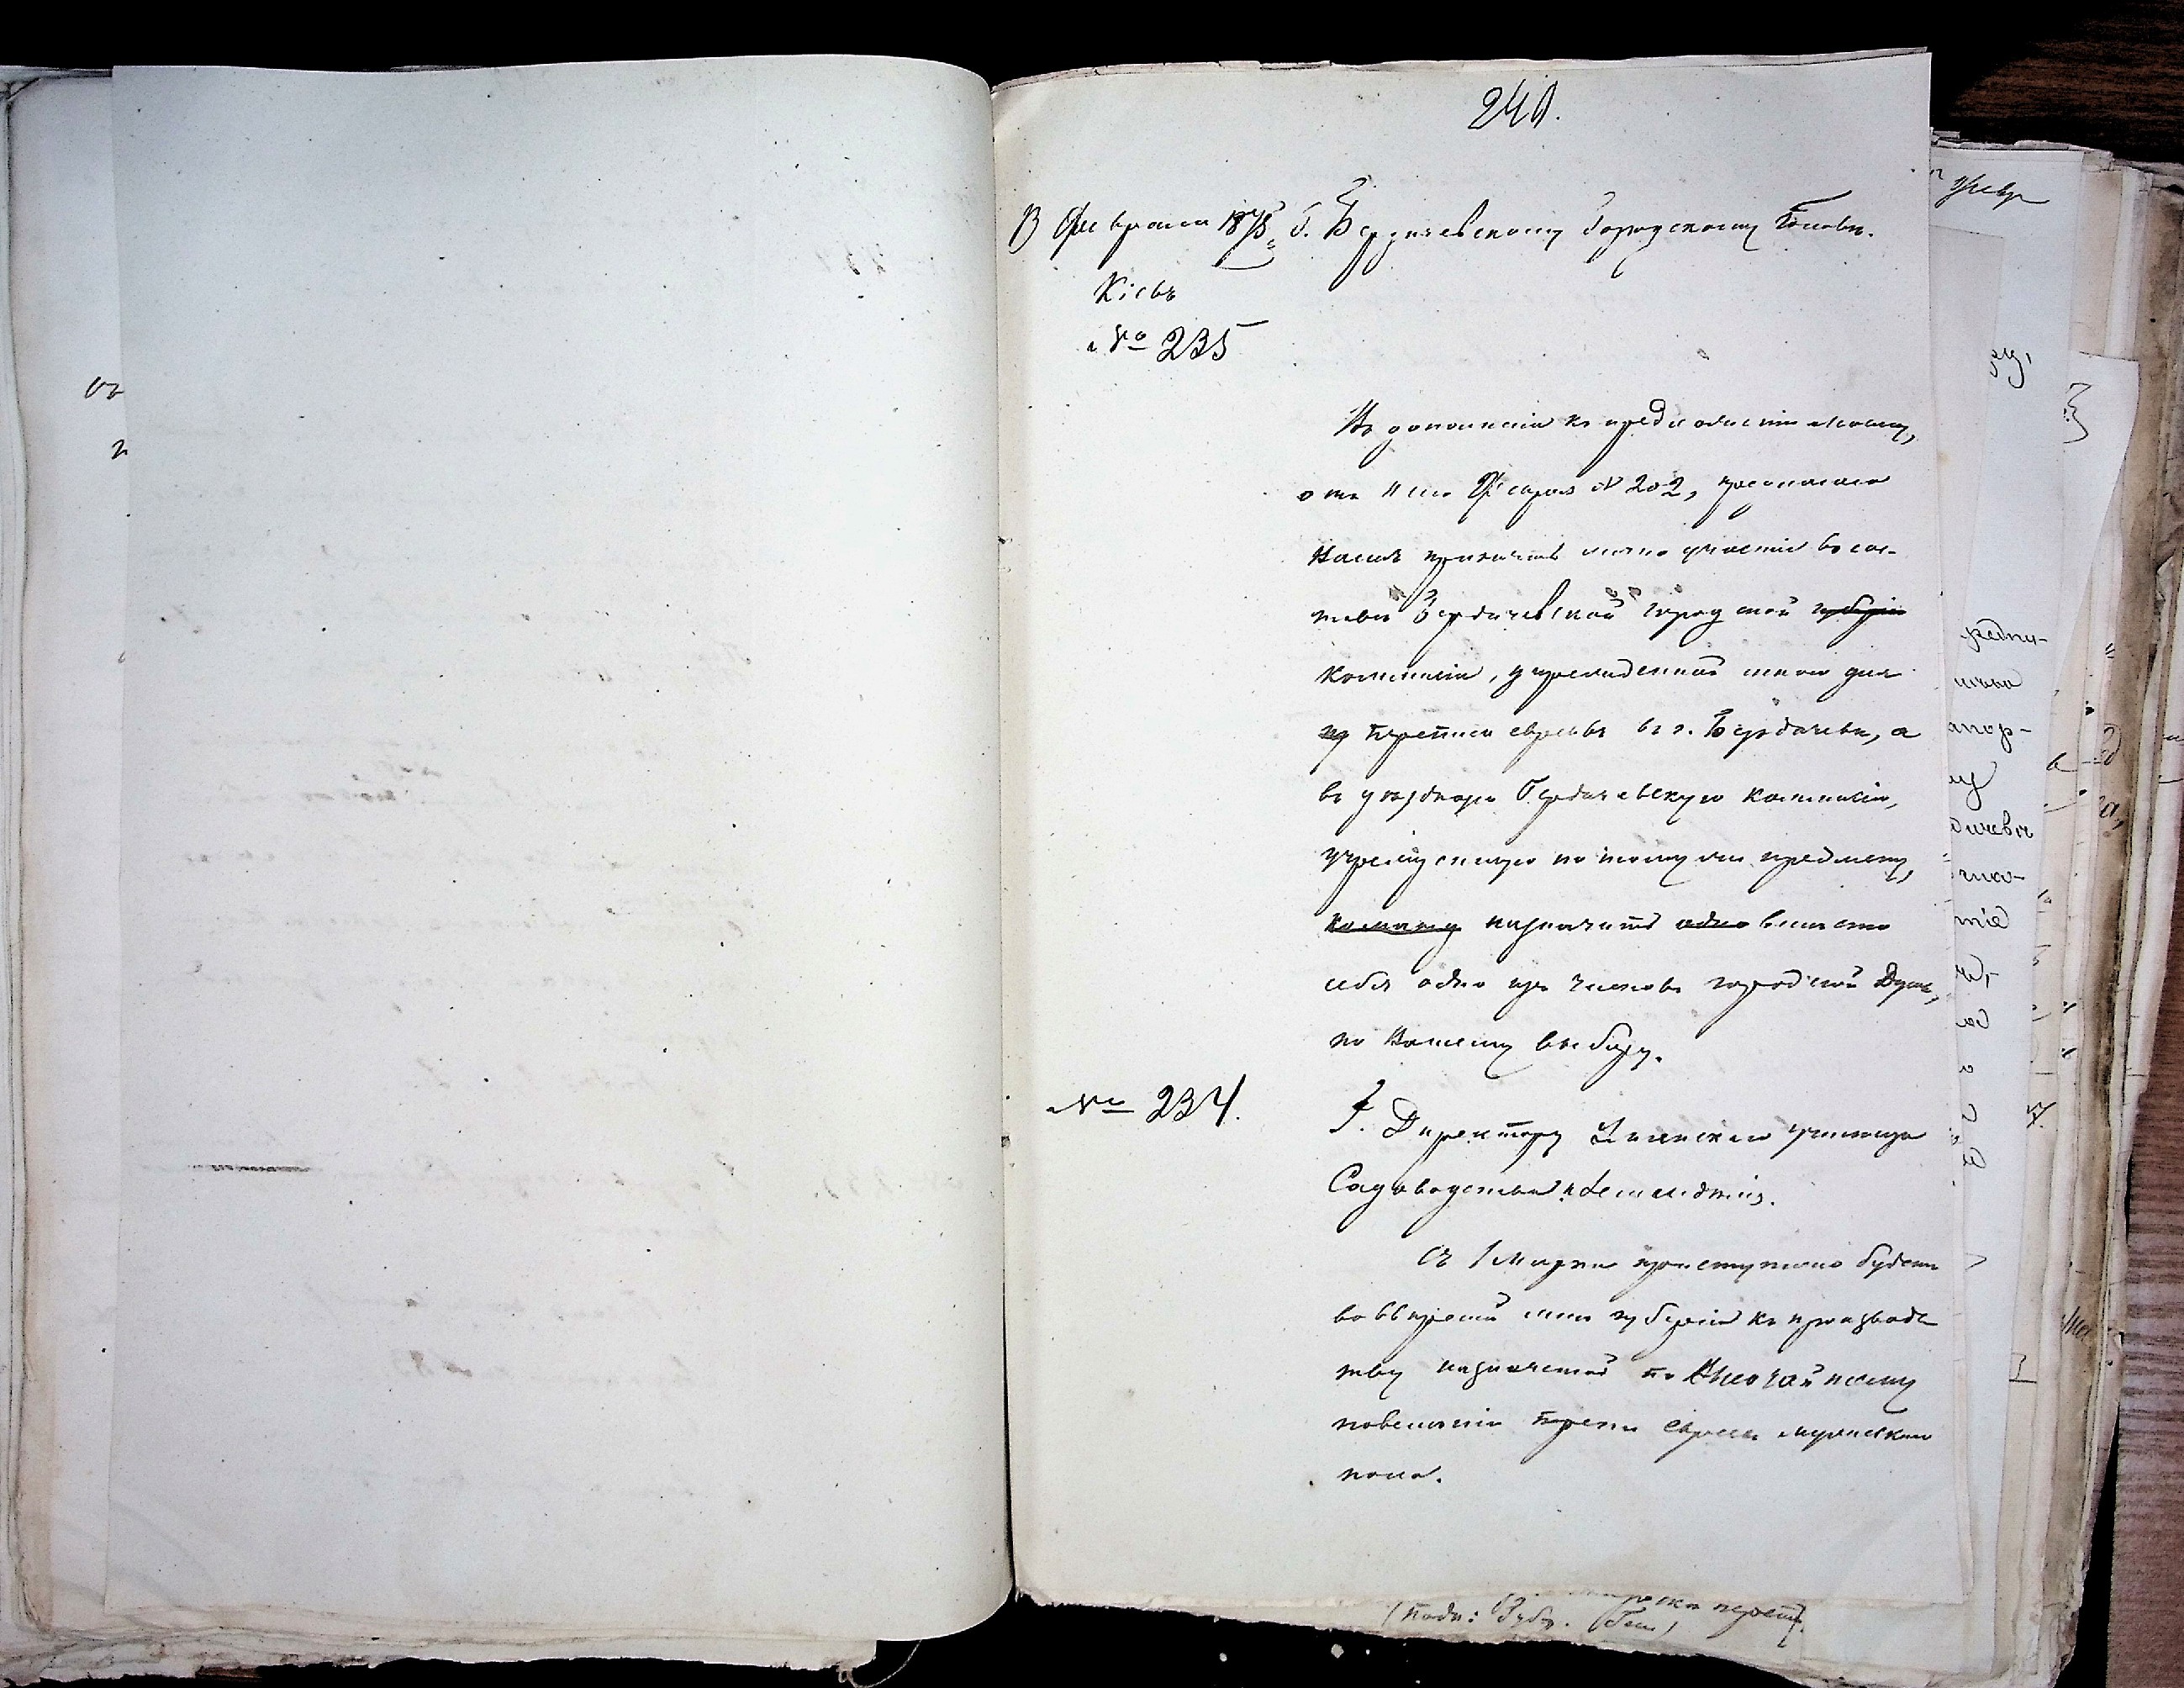 240.
13 Февраля 1875 г. Бердичевскому Городскому Головѣ.
Кіевъ
№ 235
Въ дополненіи къ предложенію моему,
отъ 11 сего Февраля № 202, предлагаю
Вамъ принимать лично участіе въ сос-
тавѣ Бердичевской городской губерніи
Коммисіи, учрежденной мною для
переписи евреевъ въ г. Бердичевѣ, а
въ уѣздную Бердичевскую Коммисію,
учрежденную по тому же предмету,
назначить одно вмѣсто
себя одно изъ членовъ городской Думы,
по Вашему выбору.
№ 234.
Г. Директору Уманскаго училища
Садоводства и Земледѣлія.
Съ 1 Марта приступлено будетъ
во ввѣренной мнѣ губерніи къ производс
тву назначенной по Высочайшему
повелѣнію переписи евреевъ мужескаго
пола.